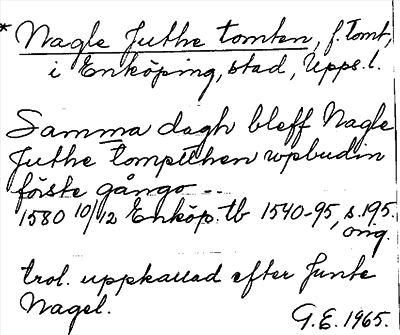 * Nagle Juthe tomten, f. Tomt,
i Enköping, stad, Upps. l.
Samma dagh bleff Nagle
Juthe tompthen wpbudin
förste gångo --
1580 10/12 Enköp. tb 1540-95, s. 195.
orig.
trol. uppkallad efter Junte
Nagel.
G.E. 1965.